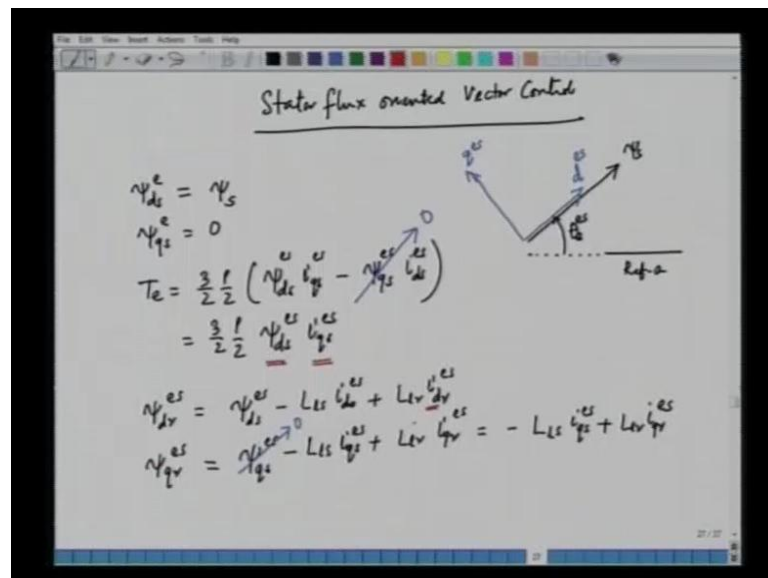 File Edit View Insert Actions Tools Help
Stator flux oriented Vector Control
ψ_ds^e = ψ_s
ψ_qs^e = 0
T_e = 3/2 P/2 (ψ_ds^es i_qs^es - ψ_qs^es i_ds^es) 0
= 3/2 P/2 ψ_ds^es i_qs^es
ψ_dr^es = ψ_ds^es - L_ls i_ds^es + L_lr i_dr^es
ψ_qr^es = ψ_qs^es 0 - L_ls i_qs^es + L_lr i_qr^es = - L_ls i_qs^es + L_lr i_qr^es
q^es
d^es
ψ_s
Ref-a
27 / 37
27